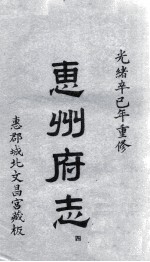 光緒辛巳年重修
惠州府志
四
惠郡城北文昌宮藏板